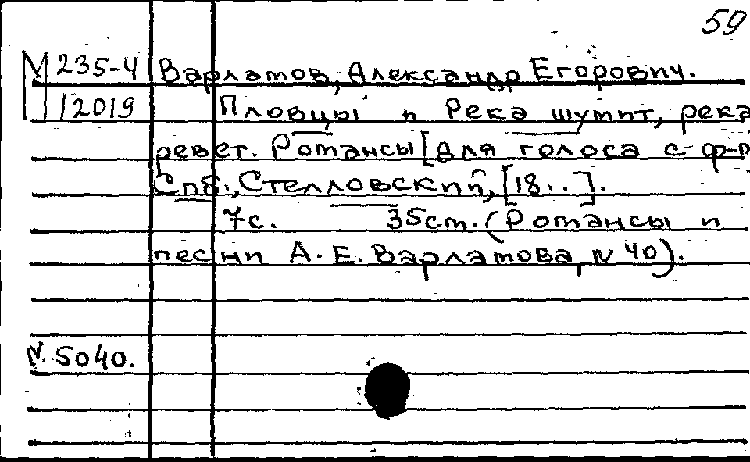 59
М 235-4 Варламов, Александр Егорович.
12019 Пловцы и Река шумит, река
ревет. Романсы [для голоса с ф-п
Спб., Стелловский, [18..].
7с. 35см. (Романсы и
песни А. Е. Варламова, № 40).
N. 5040.